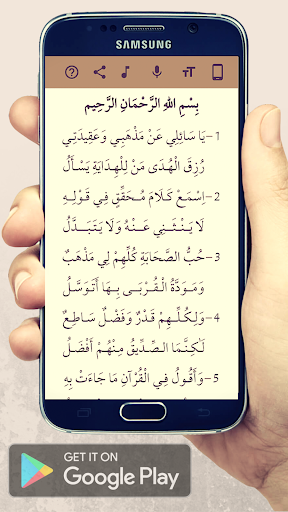 SAMSUNG
بِسْمِ اللهِ الرَّحْمَانِ الرَّحِيم
1– يَا سَائِلِي عَنْ مَذْهَبِي وَعَقِيدَتِي
رُزِقَ الْهُدَى مَنْ لِلْهِدَايَةِ يَسْأَلُ
2– اِسْمَعْ كَلَامَ مُحَقِّقٍ فِي قَوْلِهِ
لَا يَنْثَنِي عَنْهُ وَلَا يَتَبَدَّلُ
3– حُبُّ الصَّحَابَةِ كُلِّهِمْ لِي مَذْهَبٌ
وَمَوَدَّةُ الْقُرْبَى بِهَا أَتَوَسَّلُ
4– وَلِكُلِّهِمْ قَدْرٌ وَفَضْلٌ سَاطِعٌ
لَكِنَّمَا الصِّدِّيقُ مِنْهُمْ أَفْضَلُ
5– وَأَقُولُ فِي الْقُرْآنِ مَا جَاءَتْ بِهِ
GET IT ON
Google Play